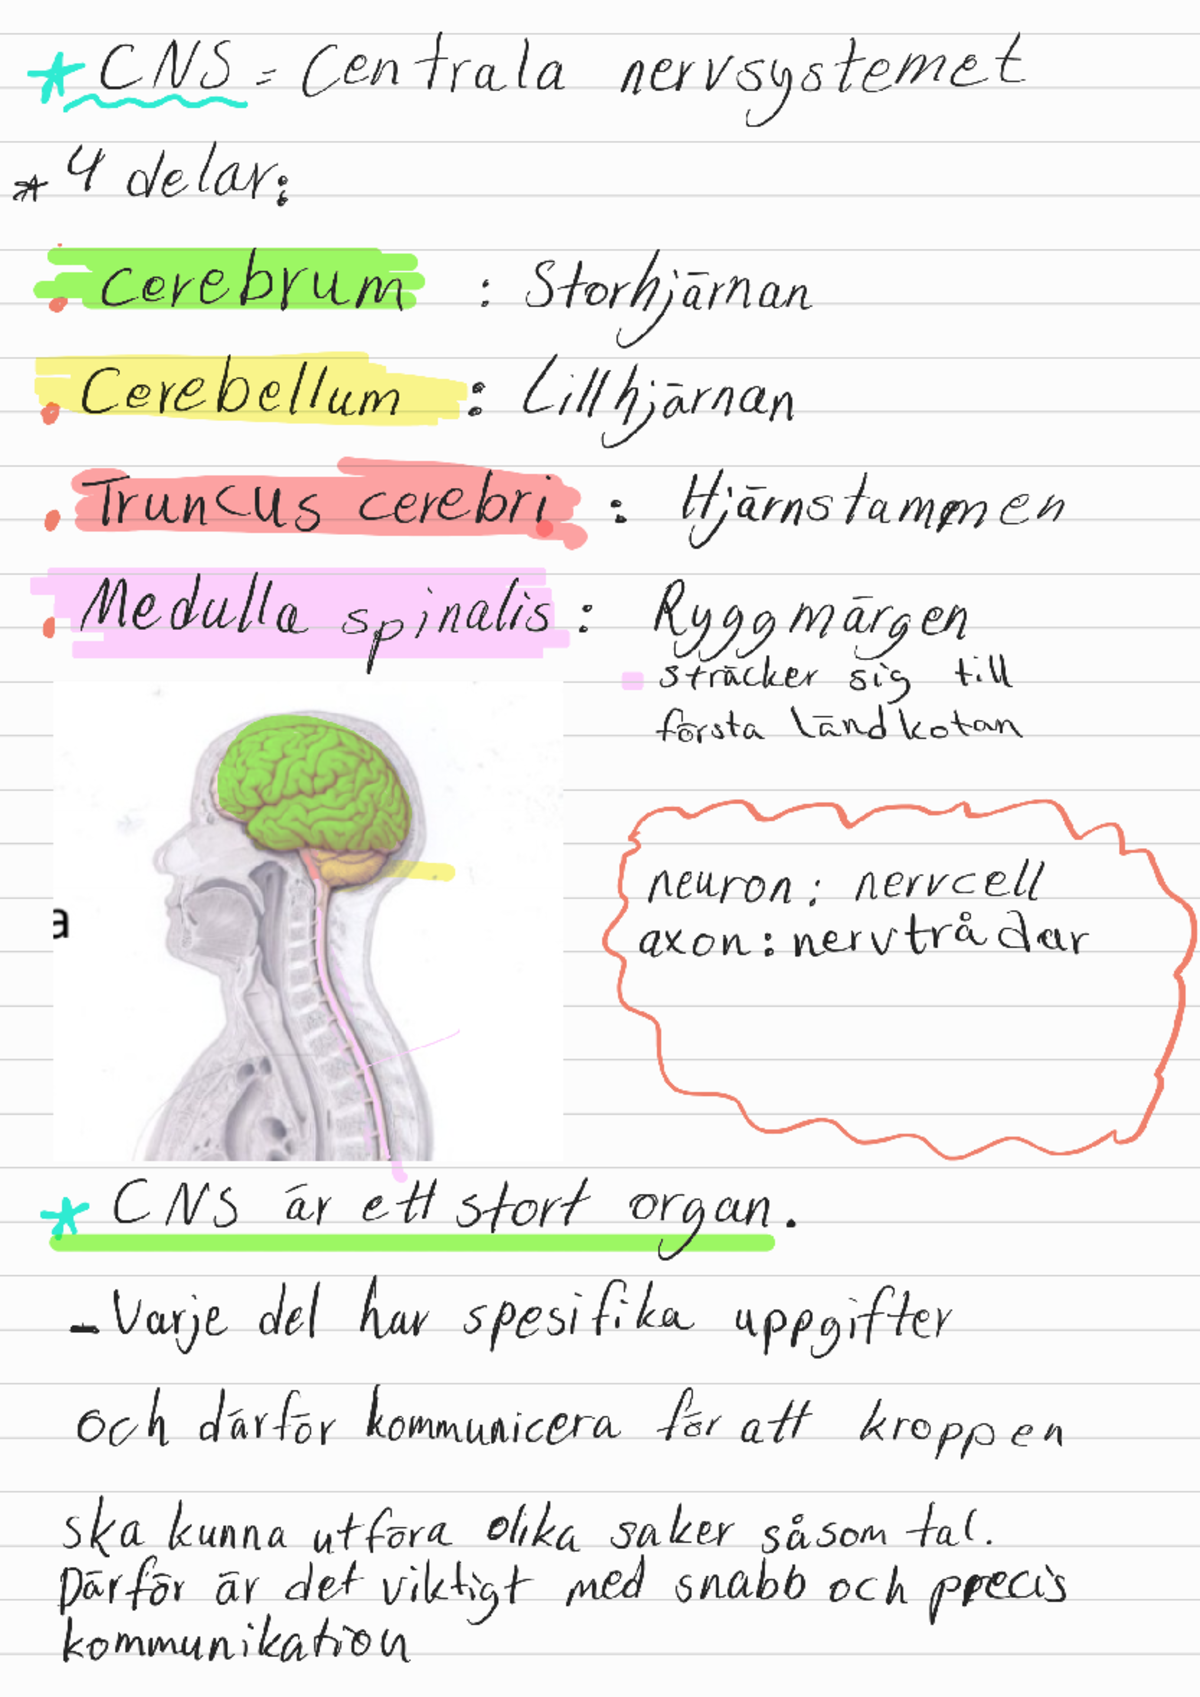 * CNS = Centrala nervsystemet
* 4 delar:
• cerebrum : Storhjärnan
• Cerebellum : Lillhjärnan
• Truncus cerebri : Hjärnstammen
• Medulla spinalis : Ryggmärgen
sträcker sig till
första ländkotan
neuron: nervcell
axon: nervtrådar
a
* CNS är ett stort organ.
- Varje del har spesifika uppgifter
och därför kommunicera för att kroppen
ska kunna utföra olika saker såsom tal.
Därför är det viktigt med snabb och precis
kommunikation